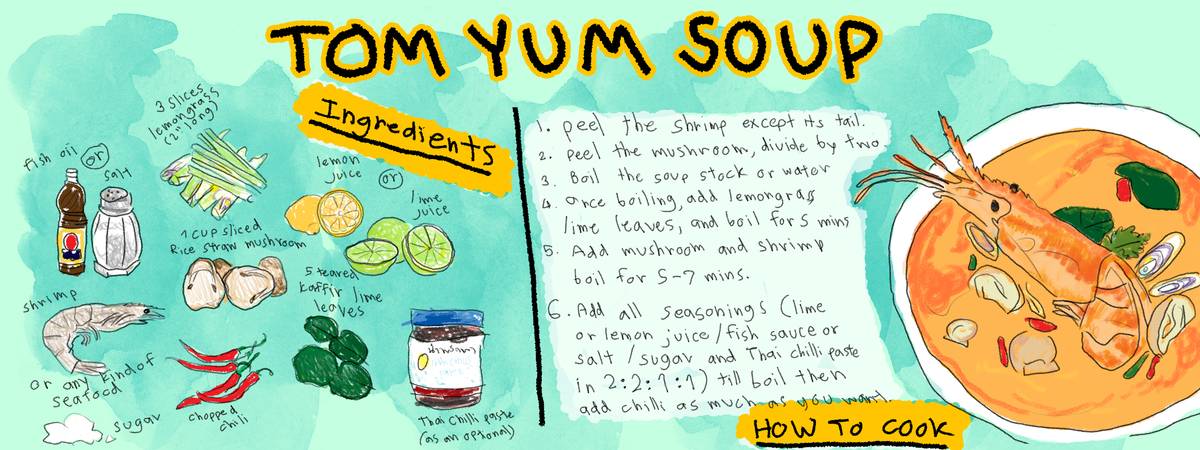 TOM YUM SOUP
Ingredients
3 slices
lemongrass
(2" long)
fish oil
or
salt
lemon
juice
or
lime
juice
1 cup sliced
Rice straw mushroom
5 teared
kaffir lime
leaves
shrimp
or any kind of
seafood
sugar
chopped
chili
Thai Chilli paste
(as an optional)
1. peel the shrimp except its tail.
2. peel the mushroom, divide by two
3. Boil the soup stock or water
4. once boiling, add lemongrass
lime leaves, and boil for 5 mins
5. Add mushroom and shrimp
boil for 5-7 mins.
6. Add all seasonings (lime
or lemon juice / fish sauce or
salt / sugar and Thai chilli paste
in 2:2:1:1) till boil then
add chilli as much as you want.
HOW TO COOK